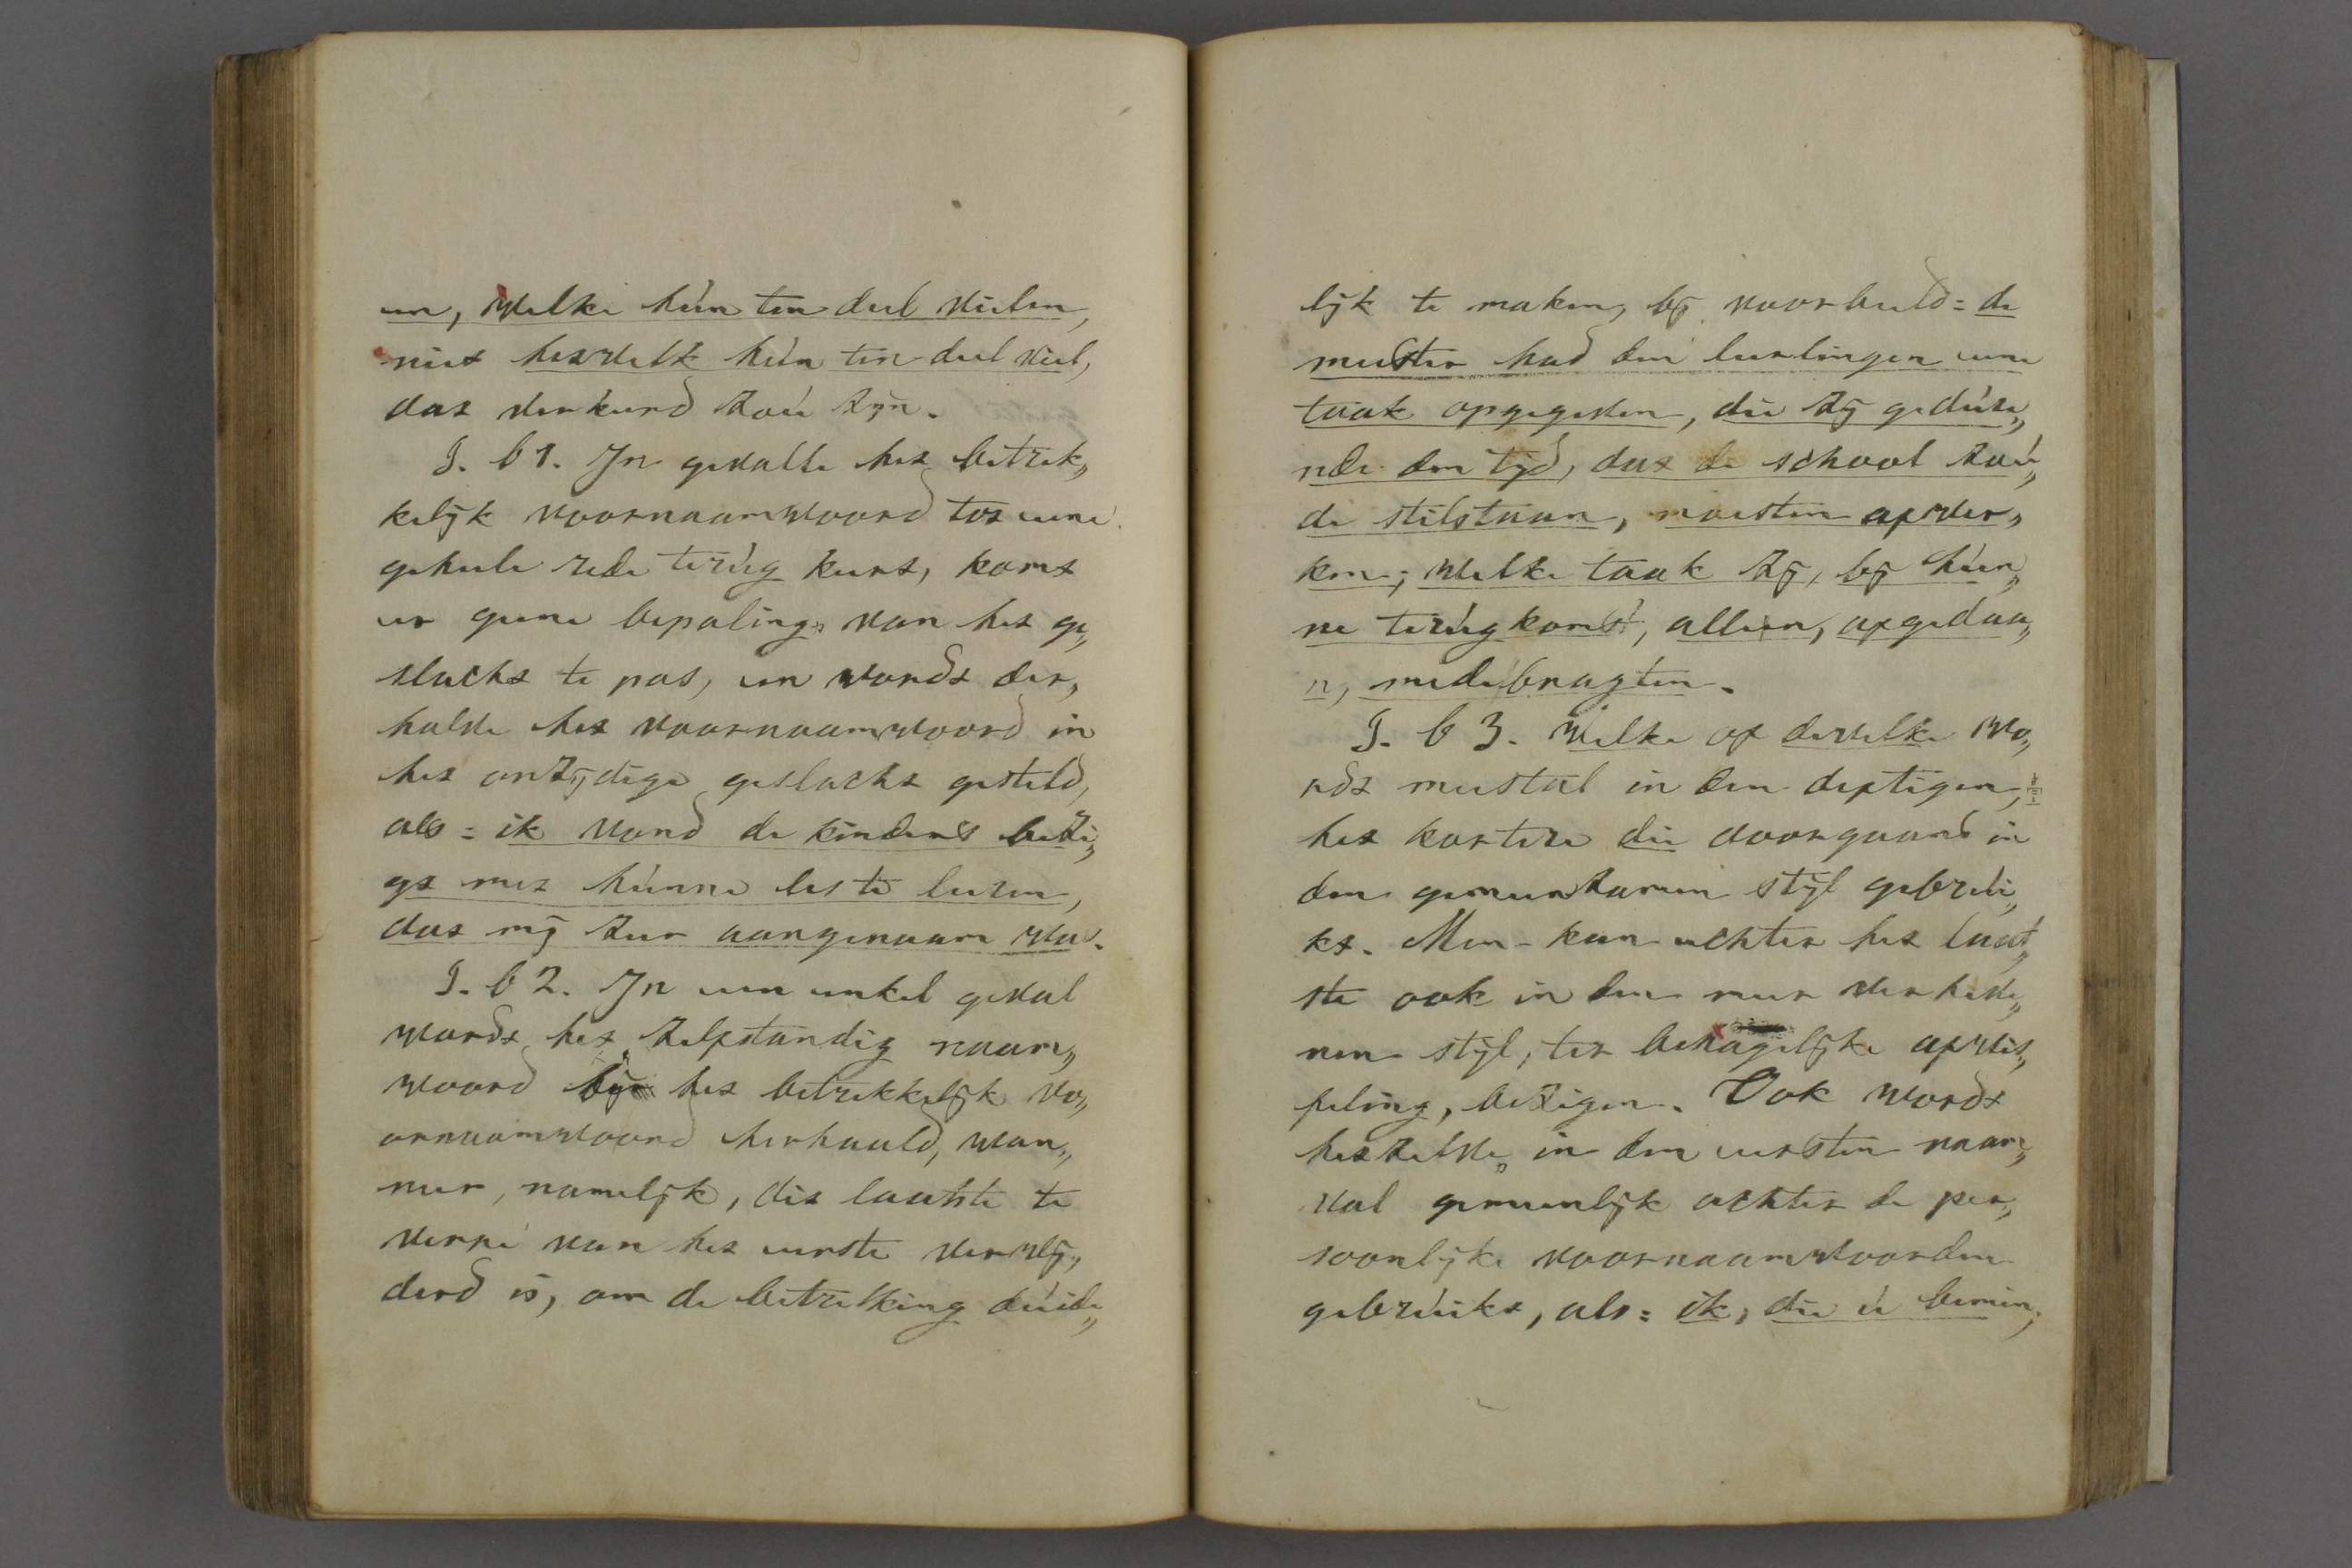 en, welke hún ten deel vielen,
niet hetwelk hún ten deel viel,
dat verkeerd zoú zijn.
§. 61. In gevalle het betrek„
kelijk voornaamwoord tot eene
geheele rede terúg keert, komt
er geene bepaling van het ge„
slacht te pas, en wordt der„
halve het voornaamwoord in
het onzijdige geslacht gesteld,
als: ik vond de kinders bezi„
gt met húnne les te leeren,
dat mij zeer aangenaam was.
§. 62. In een enkel geval
wordt het zelfstandig naam„
woord bij het betrekkelijk vo„
ornaamwoord herhaald, wan„
neer, namelijk, dit laatste te
verre van het eerste verwij„
derd is, om de betrekking dúide„
lijk te maken, bij voorbeeld: de
meester had den leerlingen eene
taak opgegeven, die zij gedúre„
nde den tijd, dat de school zoú„
de stilstaan, moesten afwer„
ken; welke taak zij, bij hún„
ne terúgkomst, alleen, afgedaa„
n, medebragten.
§. 63. Welke of dewelke wo„
rdt meestal in den deftigen,
het kortere die doorgaans in
den gemeenzamen stijl gebrúi„
kt. Men kan echter het laat„
ste ook in den meer verheve„
nen stijl, ter behagelijke afwis„
seling, bezigen. Ook wordt
hetzelve in den eersten naam„
val gemeenlijk achter de per„
soonlijke voornaamwoorden
gebrúikt, als: ik, die ú bemin;